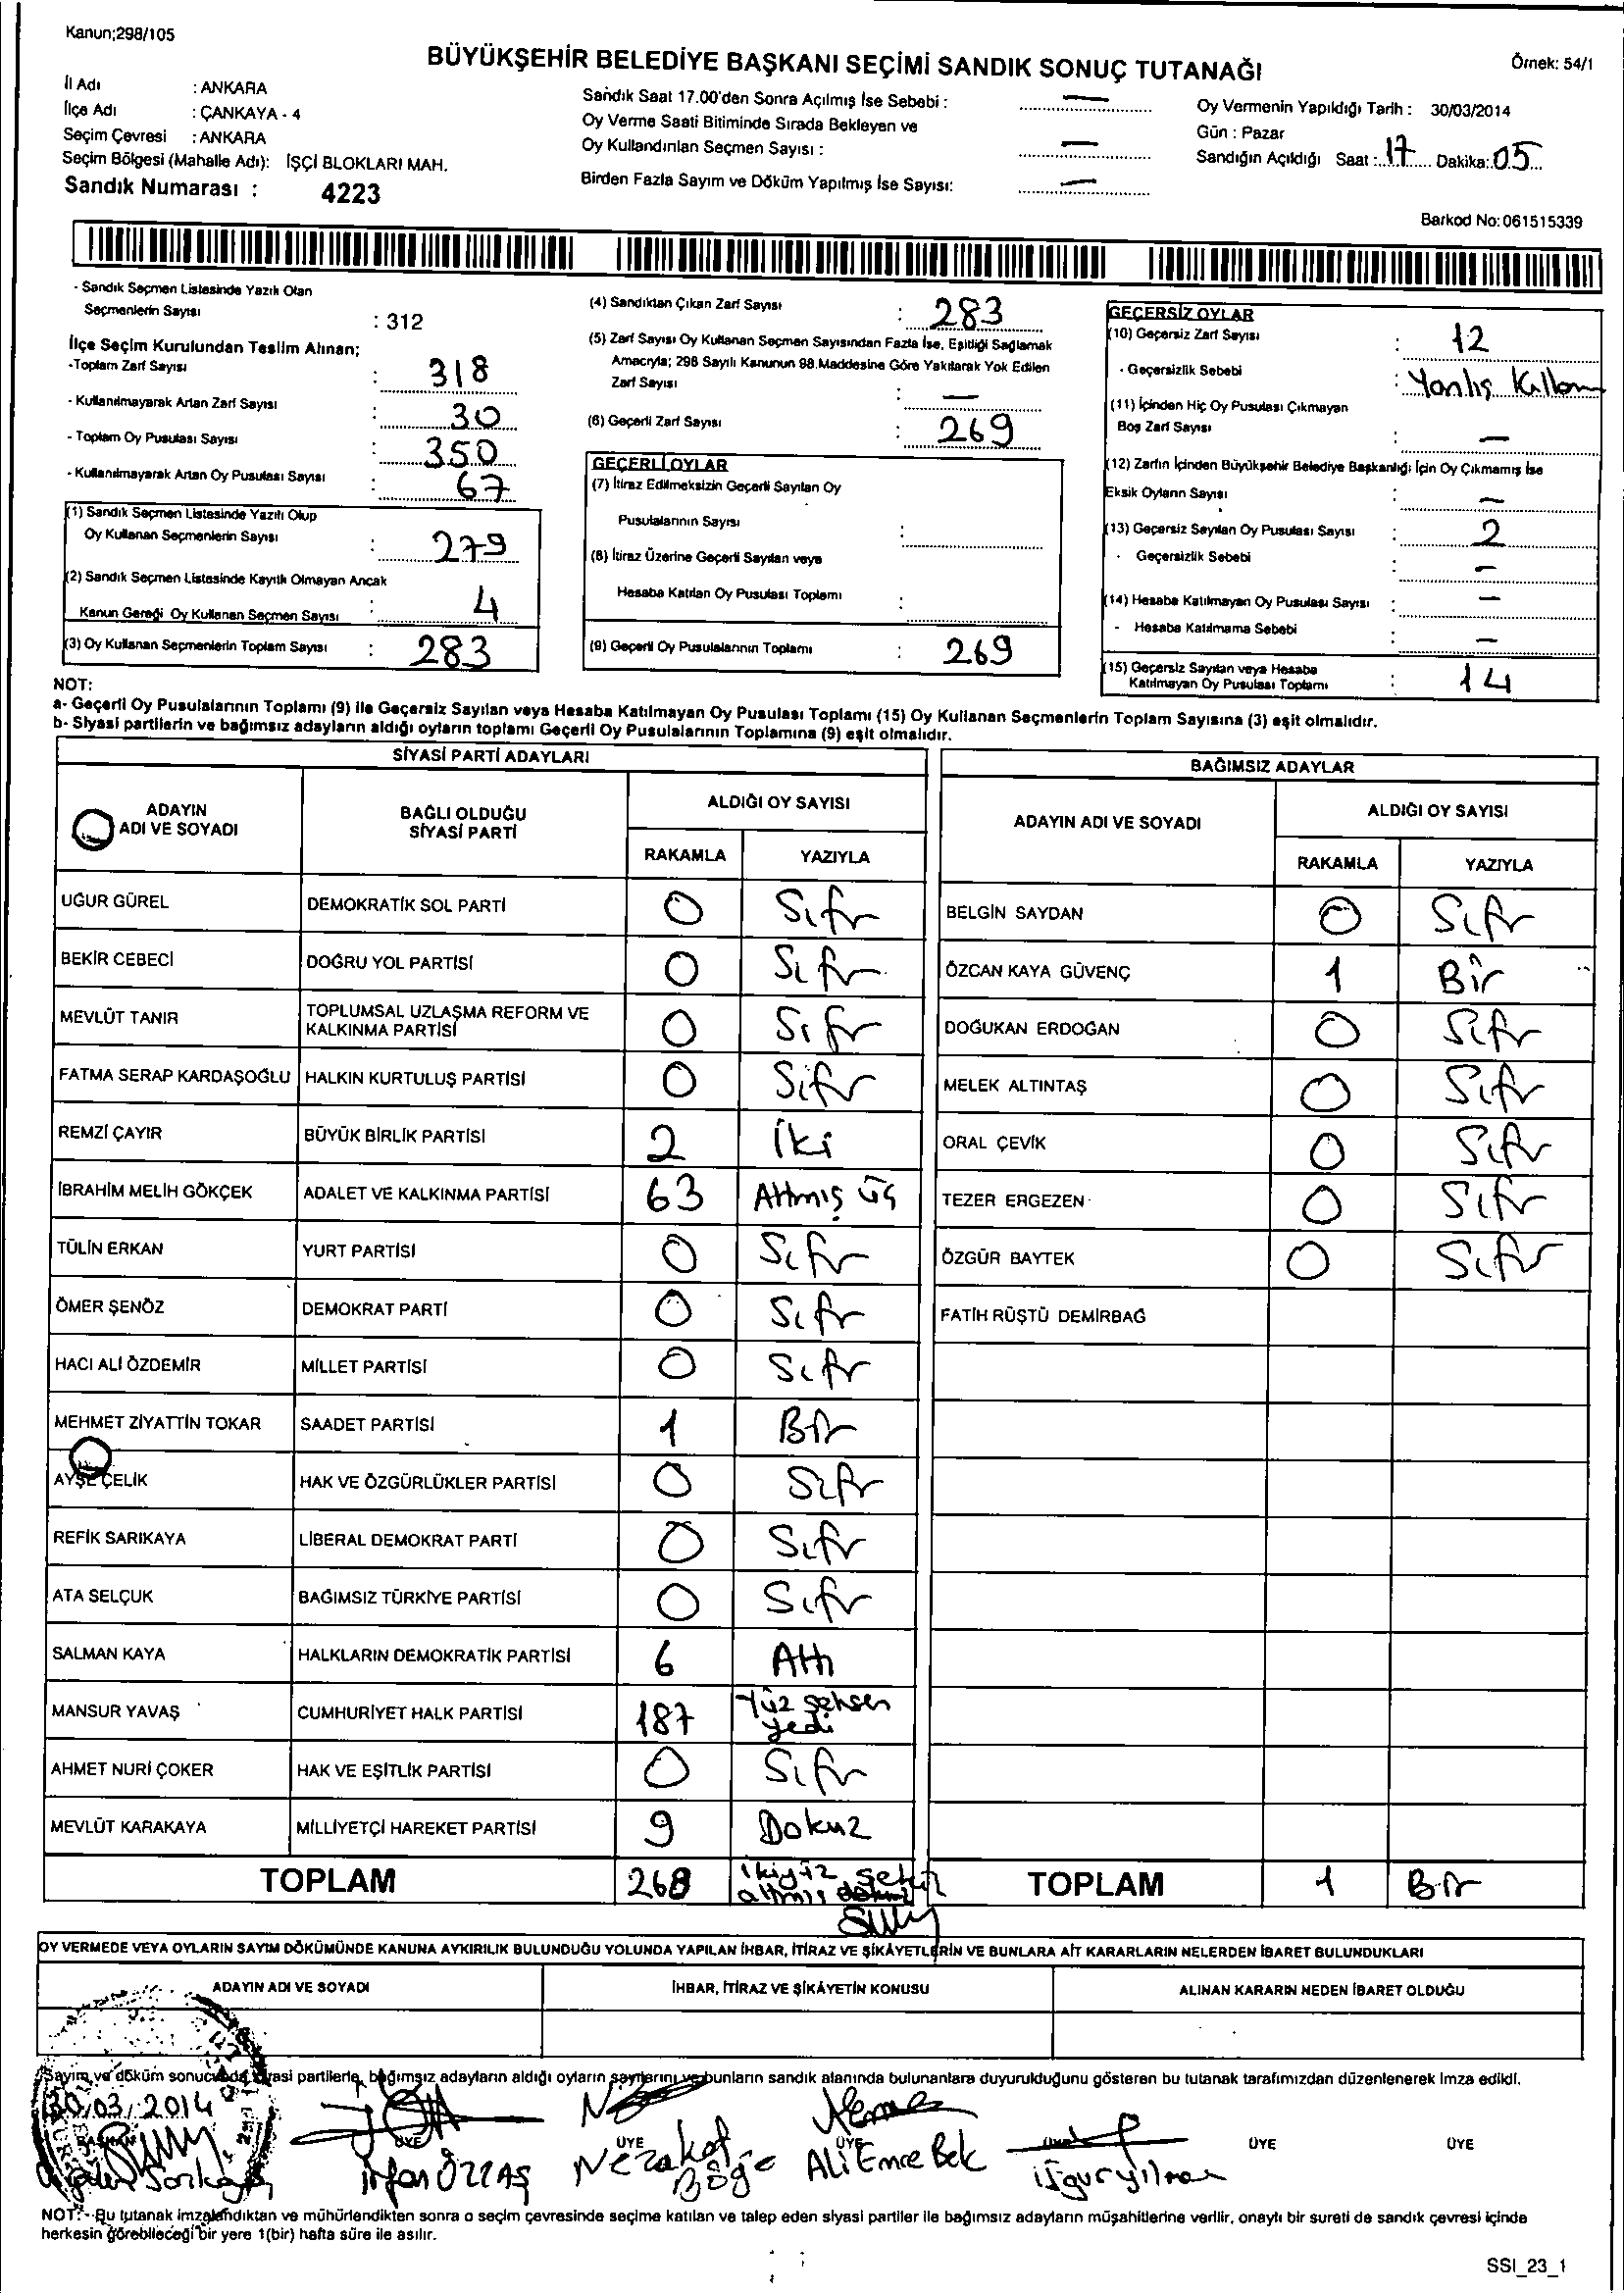 Kanun;298/105
BÜYÜKŞEHİR BELEDİYE BAŞKANI SEÇİMİ SANDIK SONUÇ TUTANAĞI
Örnek: 54/1
İl Adı : ANKARA
İlçe Adı : ÇANKAYA - 4
Seçim Çevresi : ANKARA
Seçim Bölgesi (Mahalle Adı): İŞÇİ BLOKLARI MAH.
Sandık Numarası : 4223
Sandık Saat 17.00'den Sonra Açılmış İse Sebebi : —
Oy Verme Saati Bitiminde Sırada Bekleyen ve
Oy Kullandırılan Seçmen Sayısı : —
Birden Fazla Sayım ve Döküm Yapılmış İse Sayısı: —
Oy Vermenin Yapıldığı Tarih : 30/03/2014
Gün : Pazar
Sandığın Açıldığı Saat : 17 Dakika: 05
Barkod No: 061515339
- Sandık Seçmen Listesinde Yazılı Olan
Seçmenlerin Sayısı : 312
İlçe Seçim Kurulundan Teslim Alınan;
-Toplam Zarf Sayısı : 318
- Kullanılmayarak Artan Zarf Sayısı : 30
- Toplam Oy Pusulası Sayısı : 350
- Kullanılmayarak Artan Oy Pusulası Sayısı : 67
(1) Sandık Seçmen Listesinde Yazılı Olup
Oy Kullanan Seçmenlerin Sayısı : 279
(2) Sandık Seçmen Listesinde Kayıtlı Olmayan Ancak
Kanun Gereği Oy Kullanan Seçmen Sayısı : 4
(3) Oy Kullanan Seçmenlerin Toplam Sayısı : 283
(4) Sandıktan Çıkan Zarf Sayısı : 283
(5) Zarf Sayısı Oy Kullanan Seçmen Sayısından Fazla İse, Eşitliği Sağlamak
Amacıyla; 298 Sayılı Kanunun 98.Maddesine Göre Yakılarak Yok Edilen
Zarf Sayısı : —
(6) Geçerli Zarf Sayısı : 269
GEÇERLİ OYLAR
(7) İtiraz Edilmeksizin Geçerli Sayılan Oy
Pusulalarının Sayısı :
(8) İtiraz Üzerine Geçerli Sayılan veya
Hesaba Katılan Oy Pusulası Toplamı :
(9) Geçerli Oy Pusulalarının Toplamı : 269
GEÇERSİZ OYLAR
(10) Geçersiz Zarf Sayısı : 12
- Geçersizlik Sebebi : Yanlış Kullanım
(11) İçinden Hiç Oy Pusulası Çıkmayan
Boş Zarf Sayısı : —
(12) Zarfın İçinden Büyükşehir Belediye Başkanlığı İçin Oy Çıkmamış İse
Eksik Oyların Sayısı : —
(13) Geçersiz Sayılan Oy Pusulası Sayısı : 2
- Geçersizlik Sebebi : —
(14) Hesaba Katılmayan Oy Pusulası Sayısı : —
- Hesaba Katılmama Sebebi : —
(15) Geçersiz Sayılan veya Hesaba
Katılmayan Oy Pusulası Toplamı : 14
NOT:
a- Geçerli Oy Pusulalarının Toplamı (9) ile Geçersiz Sayılan veya Hesaba Katılmayan Oy Pusulası Toplamı (15) Oy Kullanan Seçmenlerin Toplam Sayısına (3) eşit olmalıdır.
b- Siyasi partilerin ve bağımsız adayların aldığı oyların toplamı Geçerli Oy Pusulalarının Toplamına (9) eşit olmalıdır.
SİYASİ PARTİ ADAYLARI
ADAYIN ADI VE SOYADI BAĞLI OLDUĞU SİYASİ PARTİ ALDIĞI OY SAYISI
RAKAMLA YAZIYLA
UĞUR GÜREL DEMOKRATİK SOL PARTİ 0 Sıfır
BEKİR CEBECİ DOĞRU YOL PARTİSİ 0 Sıfır
MEVLÜT TANIR TOPLUMSAL UZLAŞMA REFORM VE KALKINMA PARTİSİ 0 Sıfır
FATMA SERAP KARDAŞOĞLU HALKIN KURTULUŞ PARTİSİ 0 Sıfır
REMZİ ÇAYIR BÜYÜK BİRLİK PARTİSİ 2 İki
İBRAHİM MELİH GÖKÇEK ADALET VE KALKINMA PARTİSİ 63 Altmış üç
TÜLİN ERKAN YURT PARTİSİ 0 Sıfır
ÖMER ŞENÖZ DEMOKRAT PARTİ 0 Sıfır
HACI ALİ ÖZDEMİR MİLLET PARTİSİ 0 Sıfır
MEHMET ZİYATTİN TOKAR SAADET PARTİSİ 1 Bir
AYŞE ÇELİK HAK VE ÖZGÜRLÜKLER PARTİSİ 0 Sıfır
REFİK SARIKAYA LİBERAL DEMOKRAT PARTİ 0 Sıfır
ATA SELÇUK BAĞIMSIZ TÜRKİYE PARTİSİ 0 Sıfır
SALMAN KAYA HALKLARIN DEMOKRATİK PARTİSİ 6 Altı
MANSUR YAVAŞ CUMHURİYET HALK PARTİSİ 187 Yüz seksen yedi
AHMET NURİ ÇOKER HAK VE EŞİTLİK PARTİSİ 0 Sıfır
MEVLÜT KARAKAYA MİLLİYETÇİ HAREKET PARTİSİ 9 Dokuz
TOPLAM 268 ikiyüz altmış sekiz
BAĞIMSIZ ADAYLAR
ADAYIN ADI VE SOYADI ALDIĞI OY SAYISI
RAKAMLA YAZIYLA
BELGİN SAYDAN 0 Sıfır
ÖZCAN KAYA GÜVENÇ 1 Bir
DOĞUKAN ERDOĞAN 0 Sıfır
MELEK ALTINTAŞ 0 Sıfır
ORAL ÇEVİK 0 Sıfır
TEZER ERGEZEN 0 Sıfır
ÖZGÜR BAYTEK 0 Sıfır
FATİH RÜŞTÜ DEMİRBAĞ
TOPLAM 1 Bir
OY VERMEDE VEYA OYLARIN SAYIM DÖKÜMÜNDE KANUNA AYKIRILIK BULUNDUĞU YOLUNDA YAPILAN İHBAR, İTİRAZ VE ŞİKÂYETLERİN VE BUNLARA AİT KARARLARIN NELERDEN İBARET BULUNDUKLARI
ADAYIN ADI VE SOYADI İHBAR, İTİRAZ VE ŞİKÂYETİN KONUSU ALINAN KARARIN NEDEN İBARET OLDUĞU
Sayım ve döküm sonucunda siyasi partilerle, bağımsız adayların aldığı oyların sayılarını ve bunların sandık alanında bulunanlara duyurulduğunu gösteren bu tutanak tarafımızdan düzenlenerek imza edildi.
30/03/2014
BAŞKAN ÜYE ÜYE ÜYE ÜYE ÜYE ÜYE
İrfan ÖZTAŞ Nezaket Böğe Ali Emre Bek Uğur yılmaz
NOT:- Bu tutanak imzalandıktan ve mühürlendikten sonra o seçim çevresinde seçime katılan ve talep eden siyasi partiler ile bağımsız adayların müşahitlerine verilir, onaylı bir sureti de sandık çevresi içinde
herkesin görebileceği bir yere 1(bir) hafta süre ile asılır.
SSI_23_1